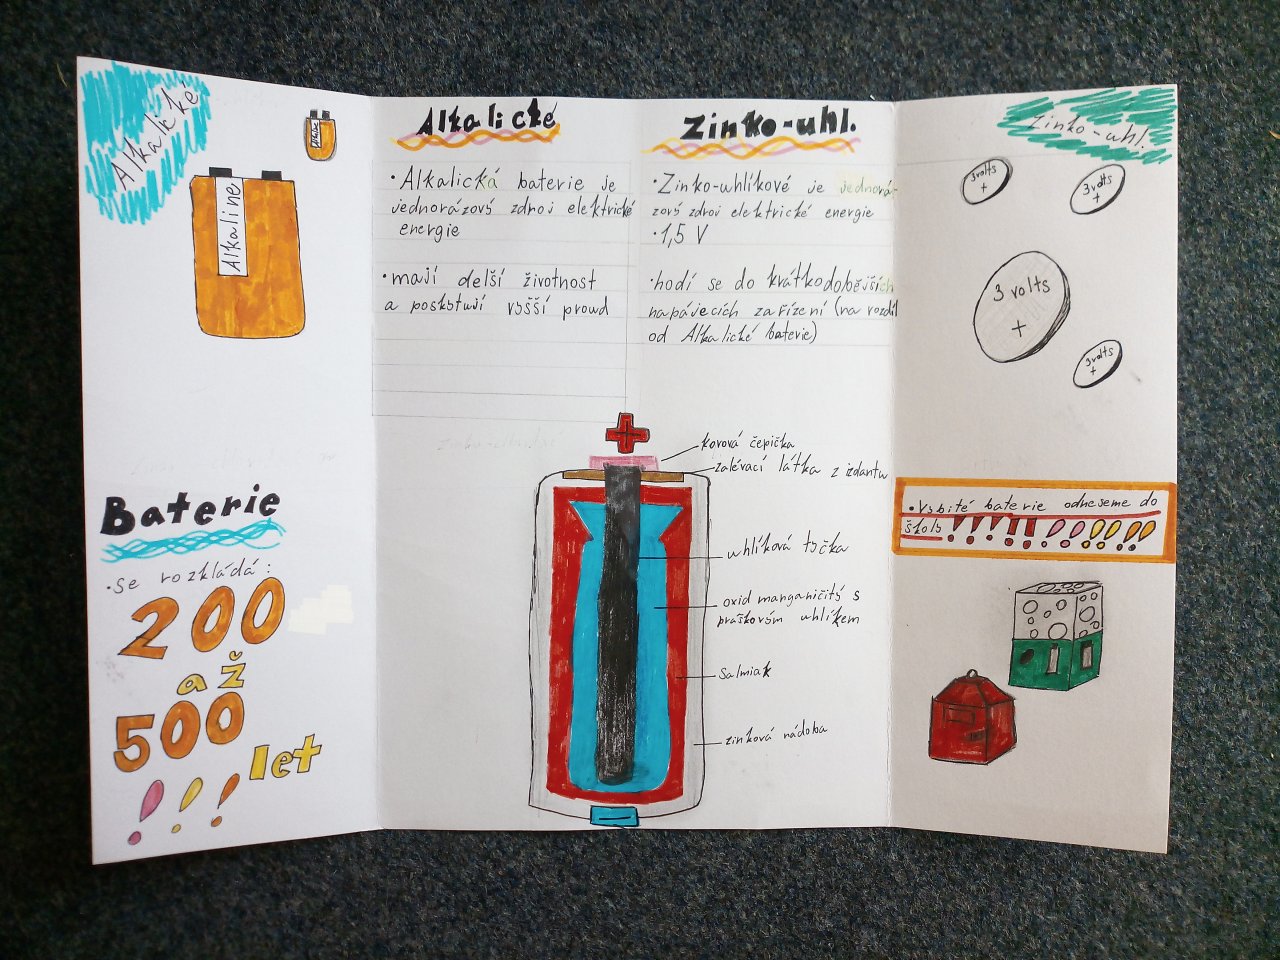 Alkalické
Alkaline
Alkaline
Baterie
•se rozkládá:
200
až
500
let
!!!
Alkalické
•Alkalická baterie je
jednorázový zdroj elektrické
energie
•mají delší životnost
a poskytují vyšší proud
Zinko-uhl.
•Zinko-uhlíkové je jednorá-
zový zdroj elektrické energie
•1,5 V
•hodí se do krátkodobějších
napájecích zařízení (na rozdíl
od Alkalické baterie)
+
kovová čepička
zalévací látka z izdantu
uhlíková tyčka
oxid manganičitý s
práškovým uhlíkem
Salmiak
zinková nádoba
-
Zinko-uhl.
3 volts
+
3 volts
+
3 volts
+
3 volts
+
•Vybité baterie odneseme do
školy !!!!!!!!!!